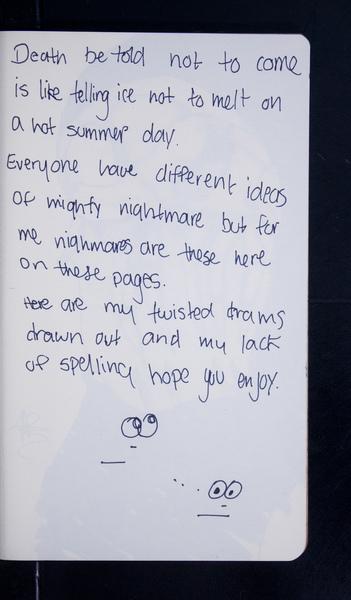 Death be told not to come
is like telling ice not to melt on
a hot summer day.
Everyone have different ideas
of mighty nightmare but for
me nighmares are these here
on these pages.
Here are my twisted drams
drawn out and my lack
of spelling hope you enjoy.